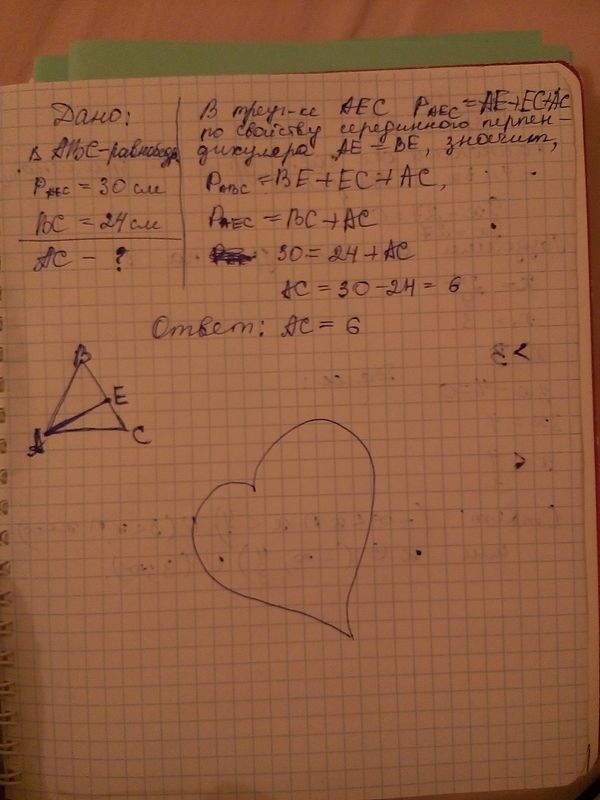 Дано:
Δ ABC-равнобед.
P AEC = 30 см
BC = 24 см
AC - ?
В треуг-ке AEC P AEC = AE+EC+AC
по свойству серединного перпен-
дикуляра AE = BE, значит,
P ABC = BE+EC+AC,
P AEC = BC+AC
30 = 24 + AC
AC = 30-24 = 6
Ответ: AC = 6
B
E
A
C